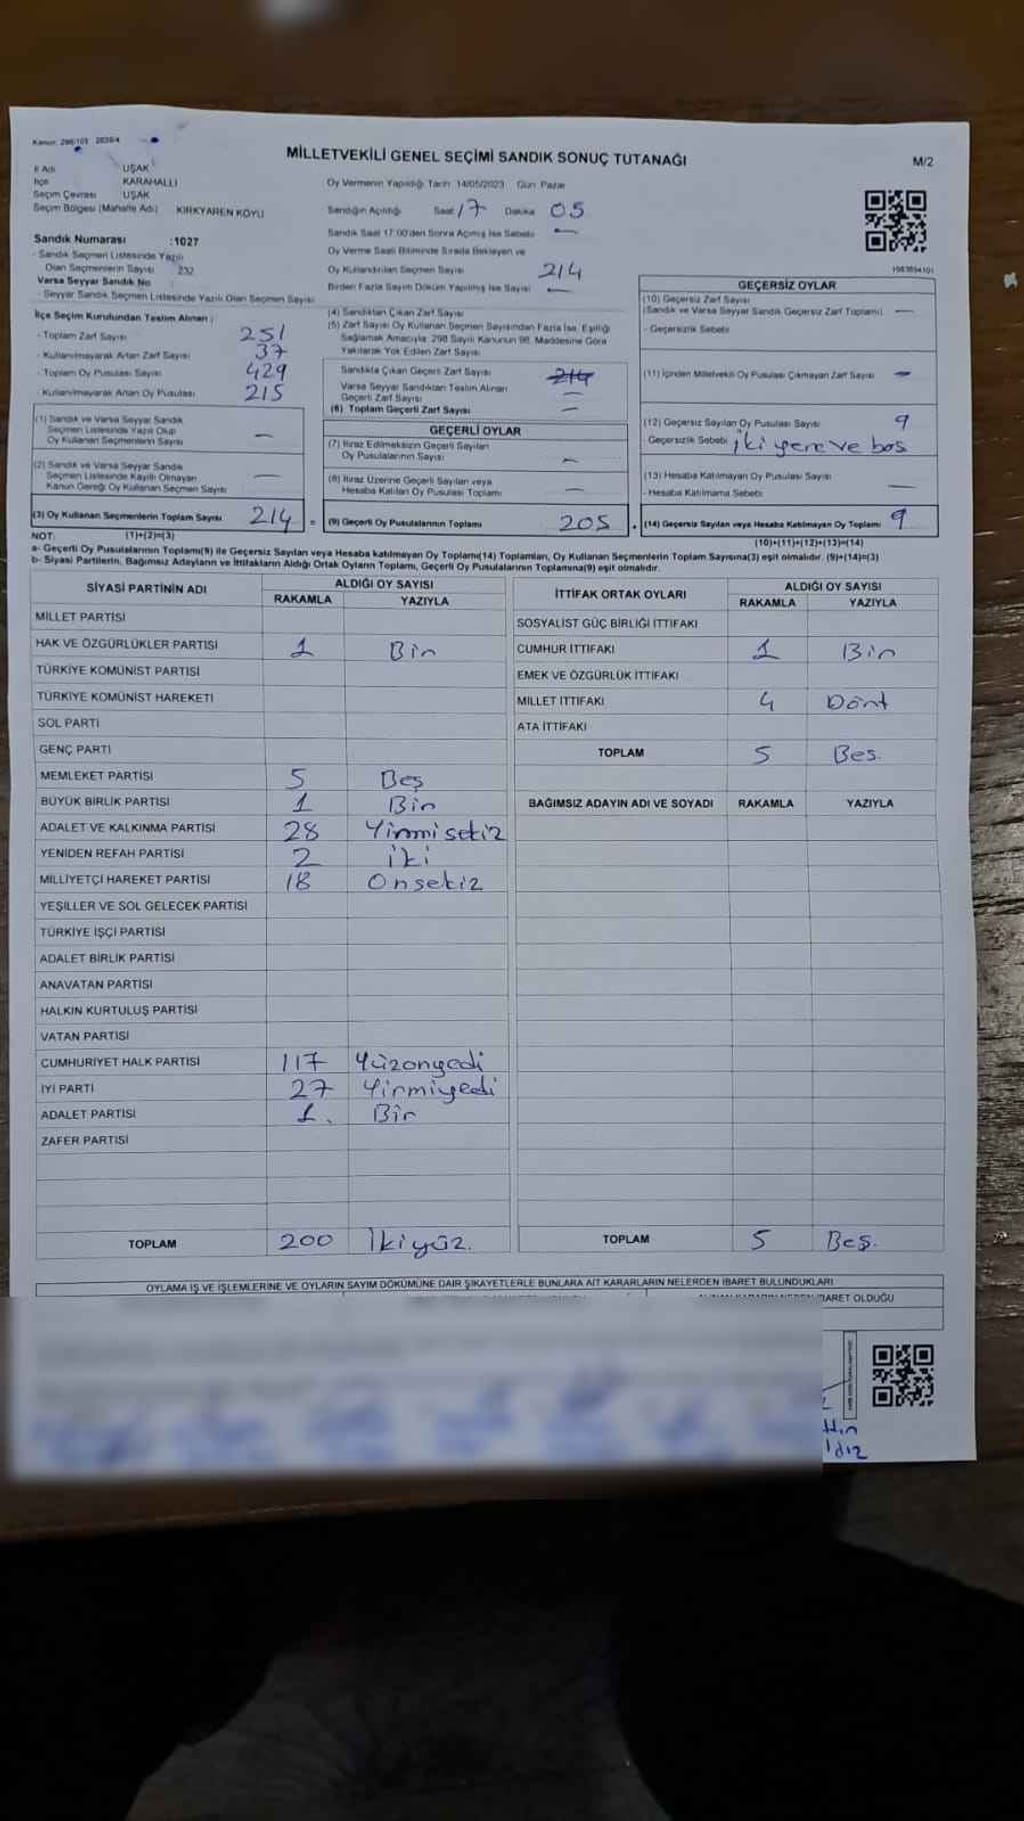 Kanun: 298/105 2839/4
MİLLETVEKİLİ GENEL SEÇİMİ SANDIK SONUÇ TUTANAĞI
M/2
İl Adı UŞAK
İlçe KARAHALLI
Seçim Çevresi UŞAK
Seçim Bölgesi (Mahalle Adı) KIRKYAREN KÖYÜ
Oy Vermenin Yapıldığı Tarih 14/05/2023 Gün: Pazar
Sandığın Açıldığı Saat 17 Dakika 05
Sandık Saat 17:00'den Sonra Açılmış İse Sebebi —
Oy Verme Saati Bitiminde Sırada Bekleyen ve
Oy Kullandırılan Seçmen Sayısı 214
Birden Fazla Sayım Döküm Yapılmış İse Sayısı —
Sandık Numarası :1027
- Sandık Seçmen Listesinde Yazılı
Olan Seçmenlerin Sayısı 232
Varsa Seyyar Sandık No
- Seyyar Sandık Seçmen Listesinde Yazılı Olan Seçmen Sayısı
İlçe Seçim Kurulundan Teslim Alınan :
- Toplam Zarf Sayısı 251
- Kullanılmayarak Artan Zarf Sayısı 37
- Toplam Oy Pusulası Sayısı 429
- Kullanılmayarak Artan Oy Pusulası 215
(4) Sandıktan Çıkan Zarf Sayısı
(5) Zarf Sayısı Oy Kullanan Seçmen Sayısından Fazla İse, Eşitliği
Sağlamak Amacıyla, 298 Sayılı Kanunun 98. Maddesine Göre
Yakılarak Yok Edilen Zarf Sayısı
Sandıkta Çıkan Geçerli Zarf Sayısı 214
Varsa Seyyar Sandıktan Teslim Alınan
Geçerli Zarf Sayısı —
(6) Toplam Geçerli Zarf Sayısı —
(1) Sandık ve Varsa Seyyar Sandık
Seçmen Listesinde Yazılı Olup
Oy Kullanan Seçmenlerin Sayısı —
(2) Sandık ve Varsa Seyyar Sandık
Seçmen Listesinde Kayıtlı Olmayan
Kanun Gereği Oy Kullanan Seçmen Sayısı —
(3) Oy Kullanan Seçmenlerin Toplam Sayısı 214 =
GEÇERLİ OYLAR
(7) İtiraz Edilmeksizin Geçerli Sayılan
Oy Pusulalarının Sayısı —
(8) İtiraz Üzerine Geçerli Sayılan veya
Hesaba Katılan Oy Pusulası Toplamı —
(9) Geçerli Oy Pusulalarının Toplamı 205 +
GEÇERSİZ OYLAR
(10) Geçersiz Zarf Sayısı
(Sandık ve Varsa Seyyar Sandık Geçersiz Zarf Toplamı) —
- Geçersizlik Sebebi
(11) İçinden Milletvekili Oy Pusulası Çıkmayan Zarf Sayısı —
(12) Geçersiz Sayılan Oy Pusulası Sayısı 9
Geçersizlik Sebebi iki yere ve boş
(13) Hesaba Katılmayan Oy Pusulası Sayısı —
- Hesaba Katılmama Sebebi
(14) Geçersiz Sayılan veya Hesaba Katılmayan Oy Toplamı 9
NOT: (1)+(2)=(3)
(10)+(11)+(12)+(13)=(14)
a- Geçerli Oy Pusulalarının Toplamı(9) ile Geçersiz Sayılan veya Hesaba katılmayan Oy Toplamı(14) Toplamları, Oy Kullanan Seçmenlerin Toplam Sayısına(3) eşit olmalıdır. (9)+(14)=(3)
b- Siyasi Partilerin, Bağımsız Adayların ve İttifakların Aldığı Ortak Oyların Toplamı, Geçerli Oy Pusulalarının Toplamına(9) eşit olmalıdır.
SİYASİ PARTİNİN ADI ALDIĞI OY SAYISI
RAKAMLA YAZIYLA
MİLLET PARTİSİ
HAK VE ÖZGÜRLÜKLER PARTİSİ 1 Bir
TÜRKİYE KOMÜNİST PARTİSİ
TÜRKİYE KOMÜNİST HAREKETİ
SOL PARTİ
GENÇ PARTİ
MEMLEKET PARTİSİ 5 Beş
BÜYÜK BİRLİK PARTİSİ 1 Bir
ADALET VE KALKINMA PARTİSİ 28 Yirmi sekiz
YENİDEN REFAH PARTİSİ 2 iki
MİLLİYETÇİ HAREKET PARTİSİ 18 Onsekiz
YEŞİLLER VE SOL GELECEK PARTİSİ
TÜRKİYE İŞÇİ PARTİSİ
ADALET BİRLİK PARTİSİ
ANAVATAN PARTİSİ
HALKIN KURTULUŞ PARTİSİ
VATAN PARTİSİ
CUMHURİYET HALK PARTİSİ 117 Yüzonyedi
İYİ PARTİ 27 Yirmiyedi
ADALET PARTİSİ 1. Bir
ZAFER PARTİSİ
TOPLAM 200 İkiyüz.
İTTİFAK ORTAK OYLARI ALDIĞI OY SAYISI
RAKAMLA YAZIYLA
SOSYALİST GÜÇ BİRLİĞİ İTTİFAKI
CUMHUR İTTİFAKI 1 Bir
EMEK VE ÖZGÜRLÜK İTTİFAKI
MİLLET İTTİFAKI 4 Dört
ATA İTTİFAKI
TOPLAM 5 Beş.
BAĞIMSIZ ADAYIN ADI VE SOYADI RAKAMLA YAZIYLA
TOPLAM 5 Beş.
OYLAMA İŞ VE İŞLEMLERİNE VE OYLARIN SAYIM DÖKÜMÜNE DAİR ŞİKAYETLERLE BUNLARA AİT KARARLARIN NELERDEN İBARET BULUNDUKLARI
BARET OLDUĞU